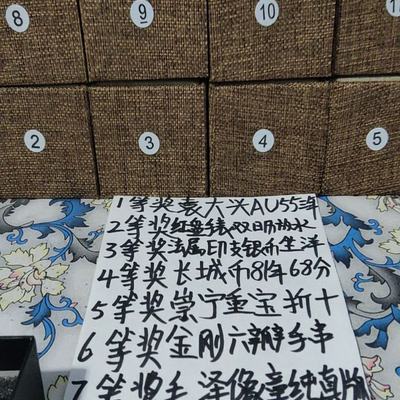 8
9
10
2
3
4
5
1等奖袁大兴AU55三年
2等奖红盘锦双日防水
3等奖法属印支银币坐洋
4等奖长城币81年68分
5等奖崇宁重宝折十
6等奖金刚六瓣手串
7等奖毛泽像章纯铜版